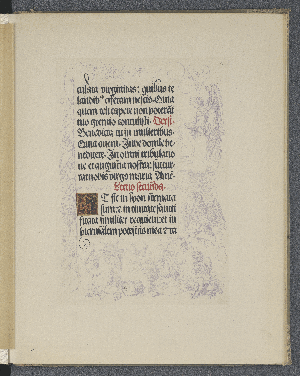 culata virginitas: quibus te
laudib' efferam nescio. Quia
quem celi capere non poterāt
tuo gremio contulisti. Versꝰ.
Benedicta tu in mulieribus.
Quia quem. Iube domñe be-
nedicere. In omni tribulatio
ne et angustia nostra: succur
rat nobis virgo maria. Amē.
Lectio secunda.
ET sic in syon firmata
sum: et in civitate sancti
ficata similiter requievi: et in
hierusalem potestas mea. Et ra